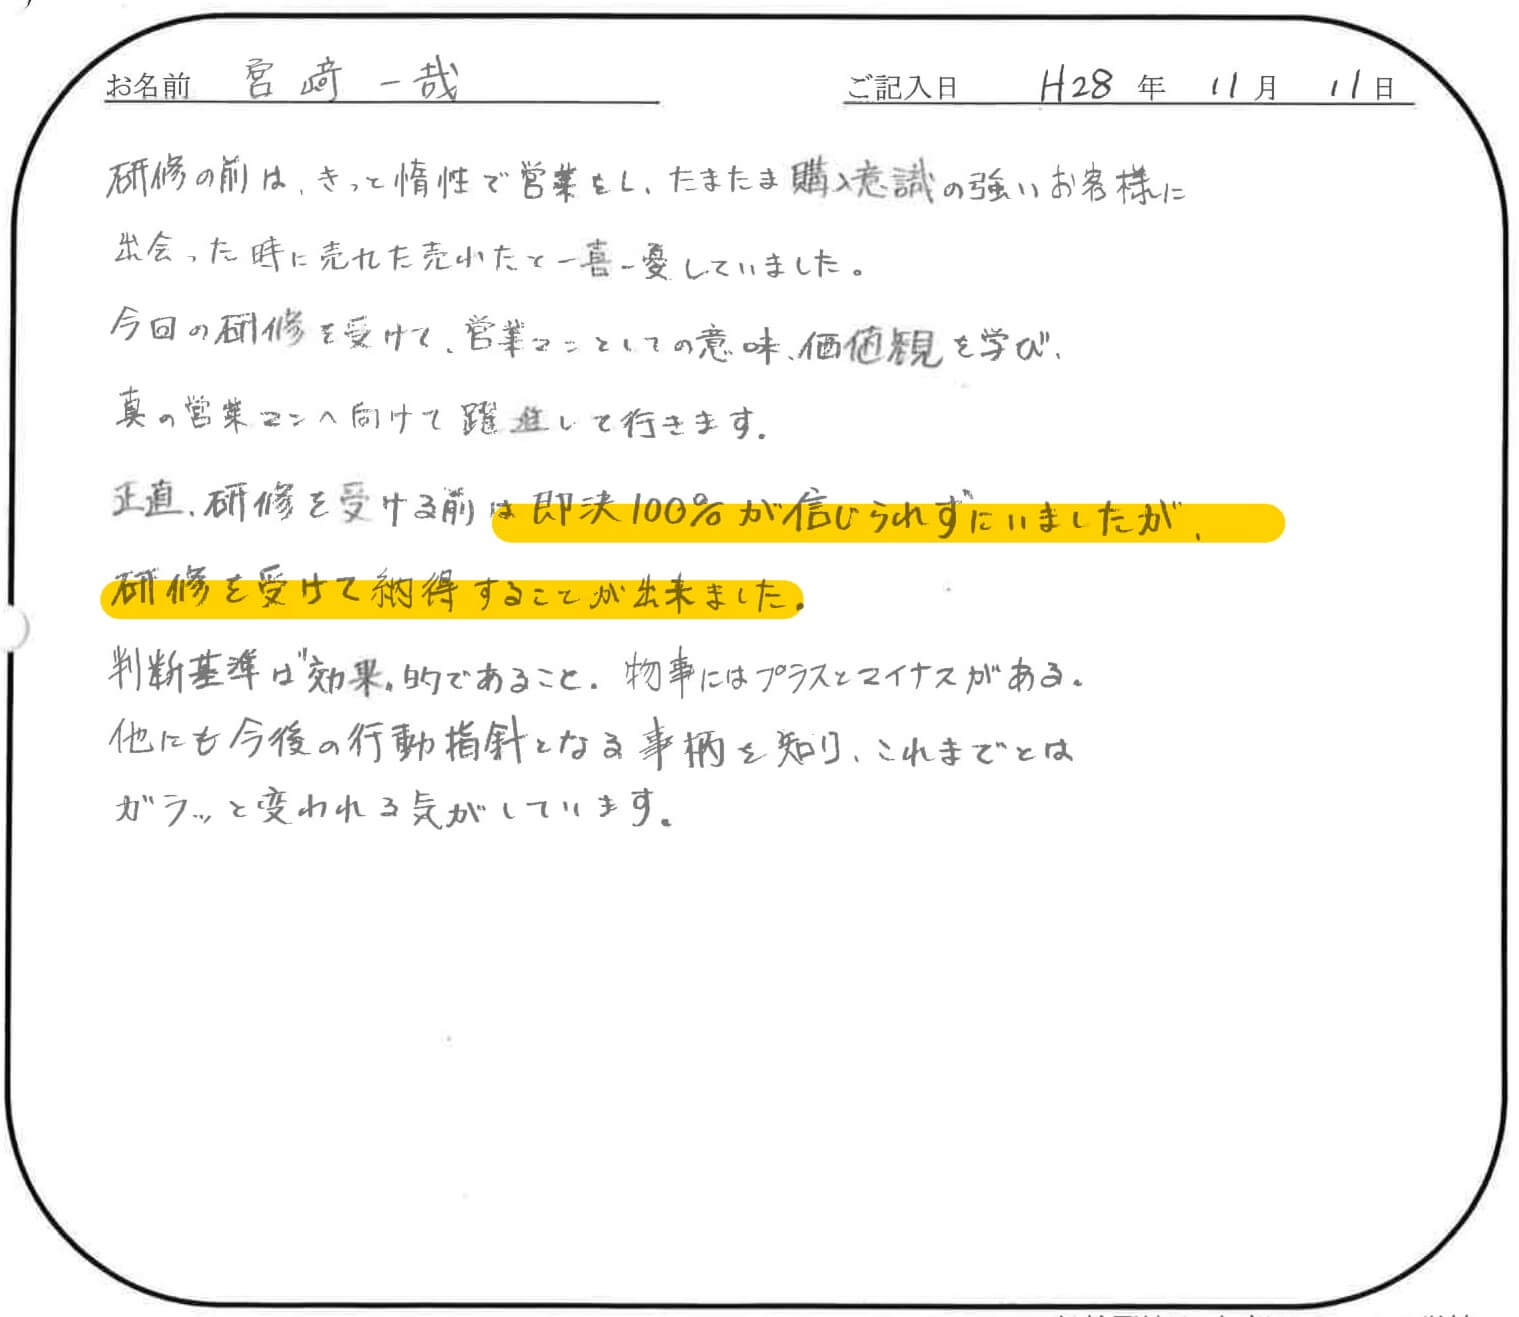 お名前 宮﨑 一哉 ご記入日 H28 年 11 月 11 日
研修の前は、きっと惰性で営業をし、たまたま購入意識の強いお客様に
出会った時に売れた売れたと一喜一憂していました。
今回の研修を受けて、営業マンとしての意味、価値観を学び、
真の営業マンへ向けて躍進して行きます。
正直、研修を受ける前は即決100%が信じられずにいましたが、
研修を受けて納得することが出来ました。
判断基準は"効果的であること。物事にはプラスとマイナスがある。
他にも今後の行動指針となる事柄を知り、これまでとは
ガラッと変われる気がしています。